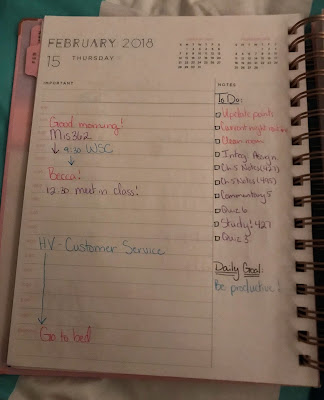 FEBRUARY 2018
15 THURSDAY
IMPORTANT
Good morning!
Mis362
9:30 WSC
Becca!
12:30 meet in class!
HV - Customer Service
Go to bed
NOTES
To Do:
Update points
Current night
Clean room
Integ. Assign
Ch.5 Notes (427)
Ch.5 Notes (495)
Commentary 5
Quiz 6
Study! 427
Quiz 3
Daily Goal:
Be productive!